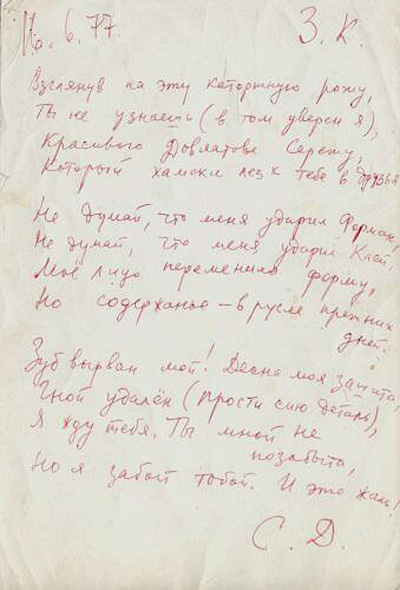 Ию. 6. 77. З. К.
Взглянув на эту каторжную рожу,
Ты не узнаешь (в том уверен я),
Красивого Довлатова Сережу,
Который хамски лез к тебе в друзья
Не думай, что меня ударил Форман,
Не думай, что меня ударил Клей,
Моё лицо переменило форму,
Но содержанье — в русле прежних
дней.
Зуб вырван мой! Десна моя зашита,
Гной удалён (прости сию деталь),
Я жду тебя. Ты мной не
позабыта,
Но я забыт тобой. И это жаль!
С. Д.